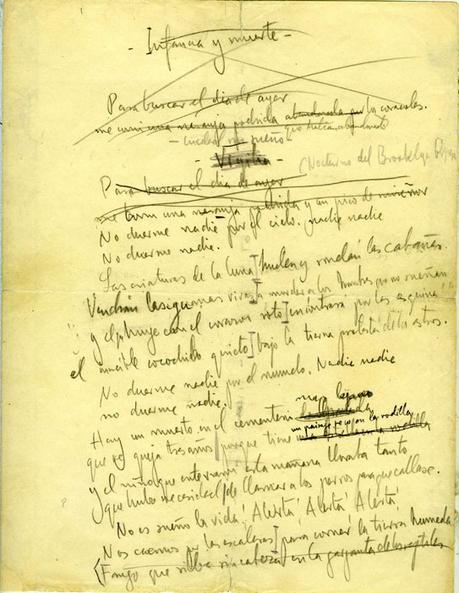 - Infancia y muerte -
Para buscar el día de ayer
me comí una naranja podrida abandonada por los caracoles.
- ciudad sin sueño -
- Vigilia - (Nocturno del Brooklyn
Para buscar el día de ayer
me comí una naranja podrida y un poco de
No duerme nadie por el cielo. Nadie nadie
No duerme nadie.
Las criaturas de la luna huelen y rondan las cabañas.
Vendrán las iguanas vivas a morder a los hombres que no sueñan
y el que huye con el corazon roto encontrará por las esquinas
el increible cocodrilo quieto bajo la tierna protesta de los astros.
No duerme nadie por el mundo. Nadie nadie
no duerme nadie.
Hay un muerto en el cementerio mas lejano
que se queja tres años porque tiene un paisaje seco en la rodilla
y el niño que enterraron esta mañana lloraba tanto
que hubo necesidad de llamar a los perros para que callase.
No es sueño la vida! Alerta! Alerta! Alerta!
Nos caemos por las escaleras para comer la tierra humeda
que silba sin cabeza en la garganta de los reptiles